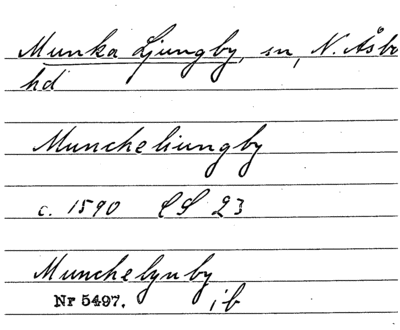 Munka Ljungby, sn, N. Åsbo
hd
Muncheliungby
c. 1590 CS 23
Munchelynby
Nr 5497. ib